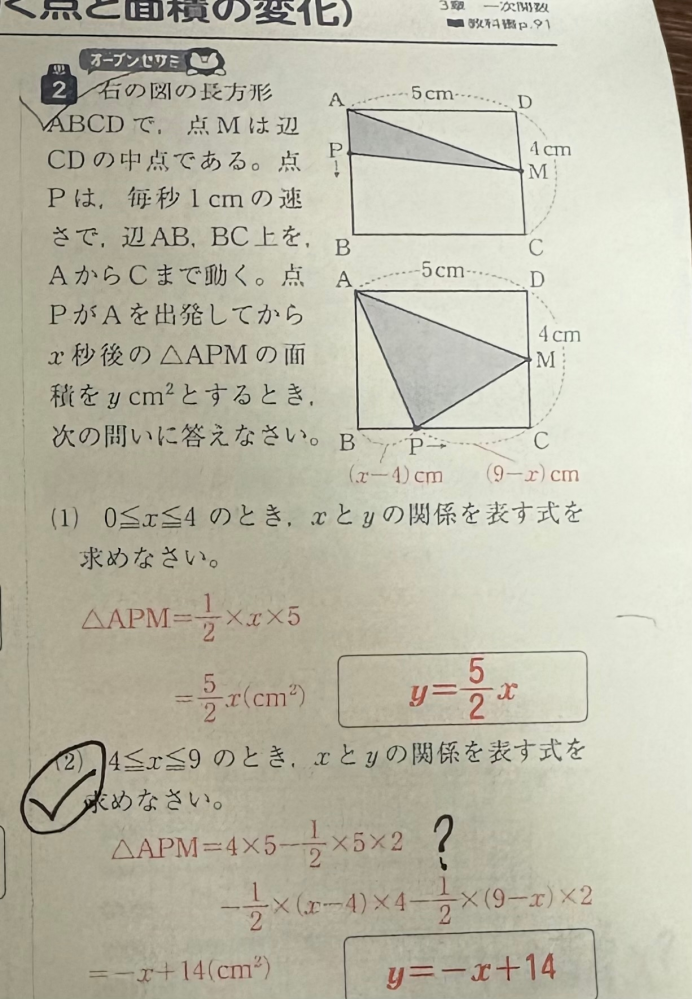 く点と面積の変化)
3章 一次関数
教科書p.91
オープンセサミ
2 右の図の長方形
ABCDで，点Mは辺
CDの中点である。点
Pは，毎秒1cmの速
さで，辺AB，BC上を，
AからCまで動く。点
PがAを出発してから
x秒後の△APMの面
積をy cm²とするとき，
次の問いに答えなさい。
A 5cm D
P 4cm
M
B C
A 5cm D
4cm
M
B P→ C
(x−4)cm (9−x)cm
(1) 0≦x≦4 のとき，xとyの関係を表す式を
求めなさい。
△APM=1/2×x×5
=5/2x(cm²) y=5/2x
(2) 4≦x≦9 のとき，xとyの関係を表す式を
求めなさい。
△APM=4×5−1/2×5×2 ?
−1/2×(x−4)×4−1/2×(9−x)×2
=−x+14(cm²) y=−x+14